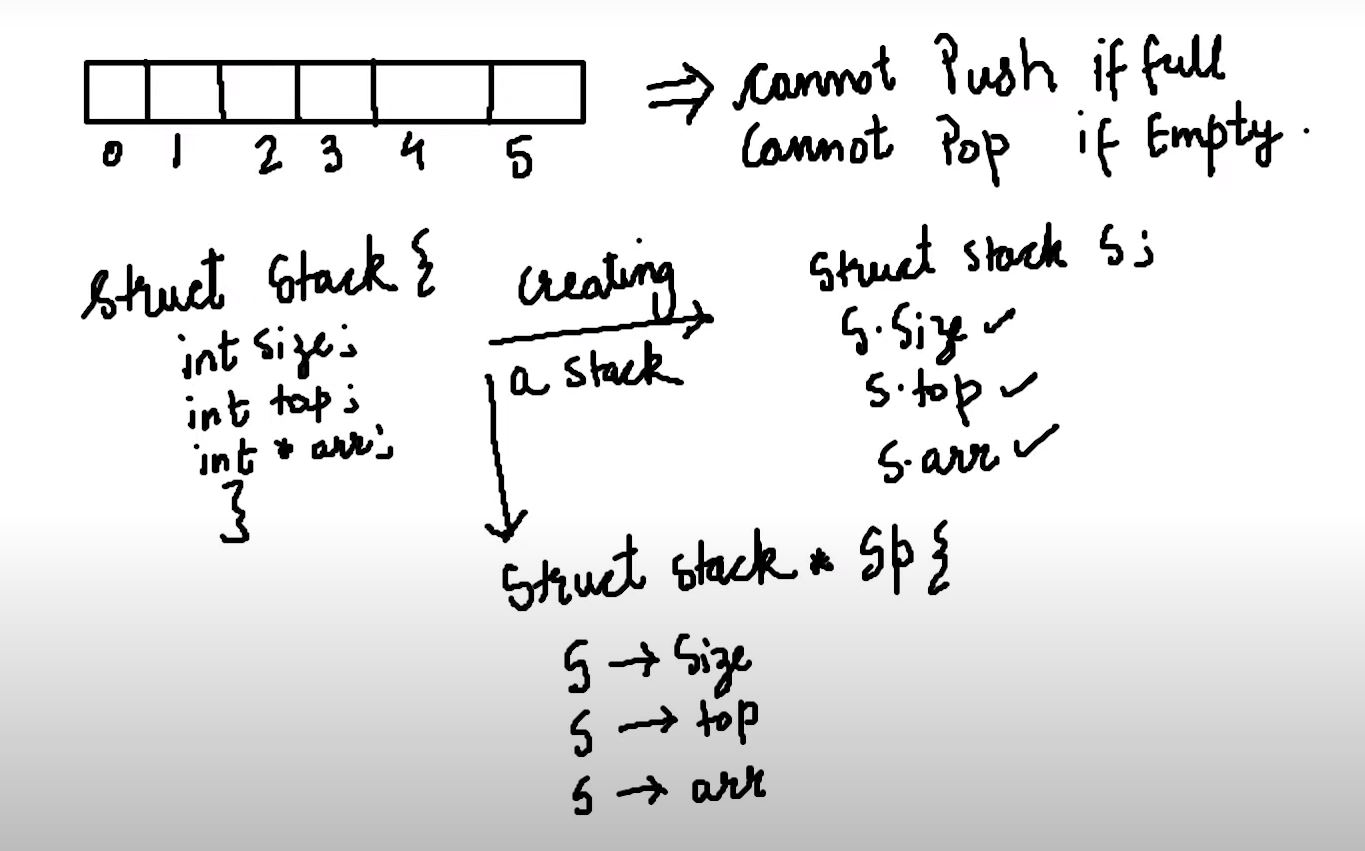 0 1 2 3 4 5
⇒ Cannot Push if full
Cannot Pop if Empty.
struct Stack {
int size;
int top;
int * arr;
}
creating
a stack
struct stack S;
S.Size ✓
S.top ✓
S.arr ✓
struct stack * Sp {
S → Size
S → top
S → arr